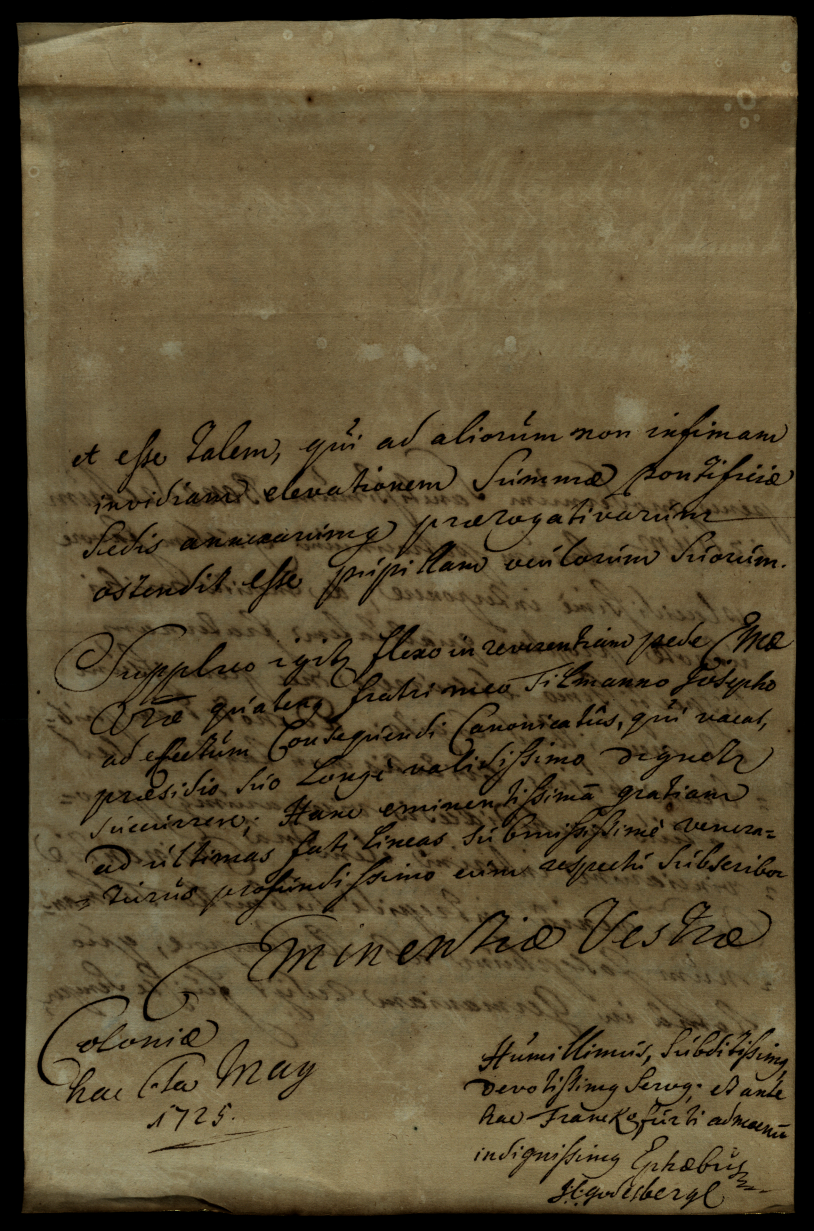 et esse talem, qui ad aliorum non infimam
invidiam elevationem Summæ pontificiæ
Sedis annexarumq prærogativarum
ostendit esse pupillam oculorum Suorum.
Supplico igitr flexo in reverentiam pede Emæ
Vræ quatenq fratri meo Tilmanno Josepho
ad effectum Consequendi Canonicatûs, qui vacat,
præsidio suo Longè validissimo dignetr
succurrere; Hanc eminentissimā gratiam
ad ultimas fati Lineas submississimè venera=
=turus profundissimo cum respectu Subscribor
Eminentiæ Vestræ
Coloniæ
hac May
1725.
Humillimus, Subditissimq
Devotissimq Servq: et ante
hac Franckofurti ad moenū
indignissimq Ephæbus